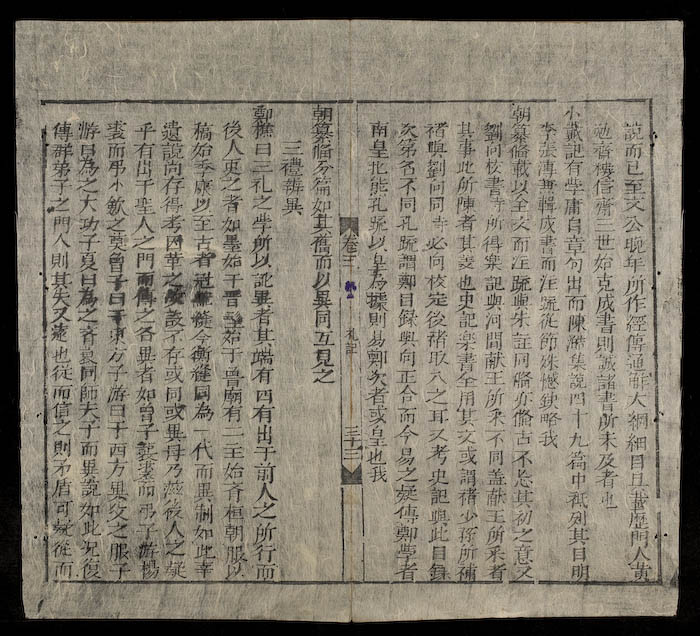 說而已至文公晚年所作經傳通解大綱細目且載歷門人黃
勉齋楊信齋三世始克成書則誠諸書所未及者也
小戴記有學庸自章句出而陳澔集說四十九篇中祗列其目明
李張溥兼輯成書而注疏從節殊憾缺略我
朝纂脩載以全文而注疏與朱註同脩亦脩古不忘其初之意又
劉向校書時所得樂記與河間献王所釆不同盖献王所釆者
其事此所陳者其義也史記樂書全用其文或謂褚少孫所補
褚與劉向同時必向校定後褚取入之耳又考史記與此目錄
次第各不同孔疏謂鄭目録與向正合而今易之疑傳鄭學者
南皇北熊孔疏以皇為據則易鄭次者或皇也我
朝纂脩分篇如其舊而以異同互見之
三禮辨異
鄭樵曰三礼之學所以訛異者其端有四有出于前人之所行而
後人更之者如墨始于晋髽始于魯廟有二主始齊桓朝服以
稿始季康以至古者冠縮縫今衡縫同為一代而異制如此幸
遺說尚存得考因革之故設不存或同或異毋乃滋後人之疑
乎有出于聖人之門而傳之各異者如曾子襲裘而弔子游楊
裘而弔小歛之奠曾子曰于東方子游曰于西方異父之服子
游曰為之大功子夏曰為之齊衰同師夫子而異說如此况復
傳群弟子之門人則其失又遠也從而信之則矛盾可疑從而
卷三
礼記
三十二